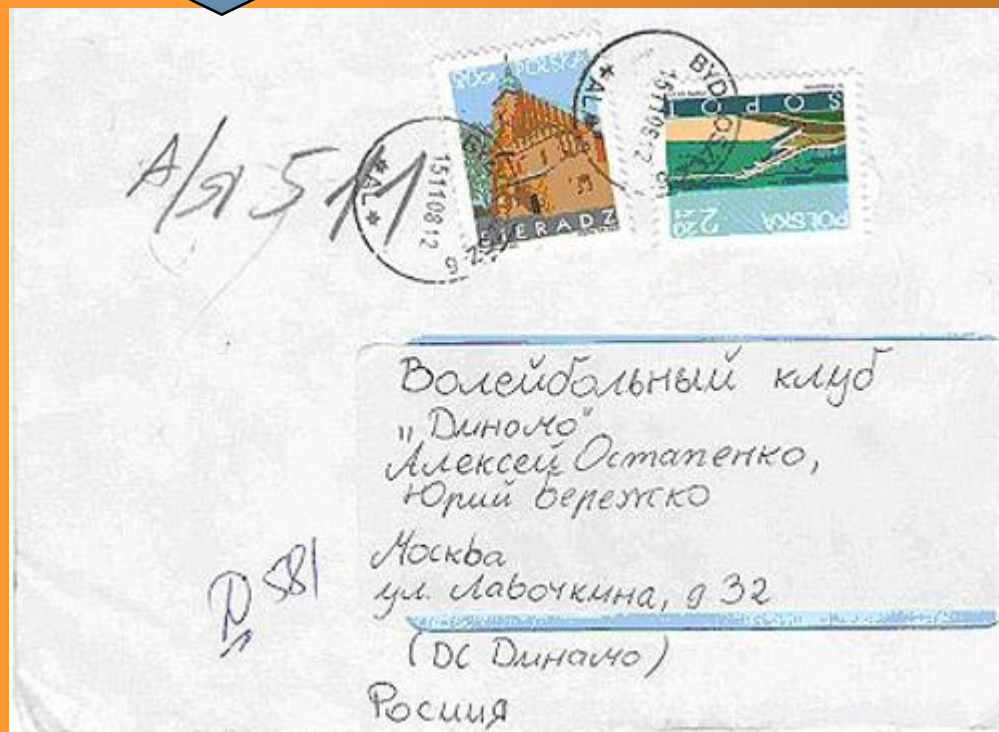 POLSKA
SIERADZ
*AL*
15 11 08 12
*AL*
BYDGOSZCZ
15 11 08 12
SOPOT
2,20 zł
POLSKA
А/я 511
Волейбольный клуб
"Динамо"
Алексей Остапенко,
Юрий Бережко
Москва
ул. Лавочкина, д 32
(DC Динамо)
Росиия
D 581